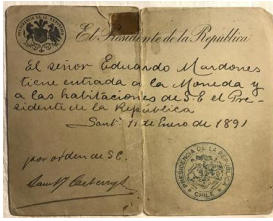 El Presidente de la República
El señor Eduardo Mardones
tiene entrada a la Moneda y
a las habitaciones de S.E. el Pre-
sidente de la República
Santº 11 de Enero de 1891
por orden de S.E.
PRESIDENCIA DE LA REPUBLICA
CHILE